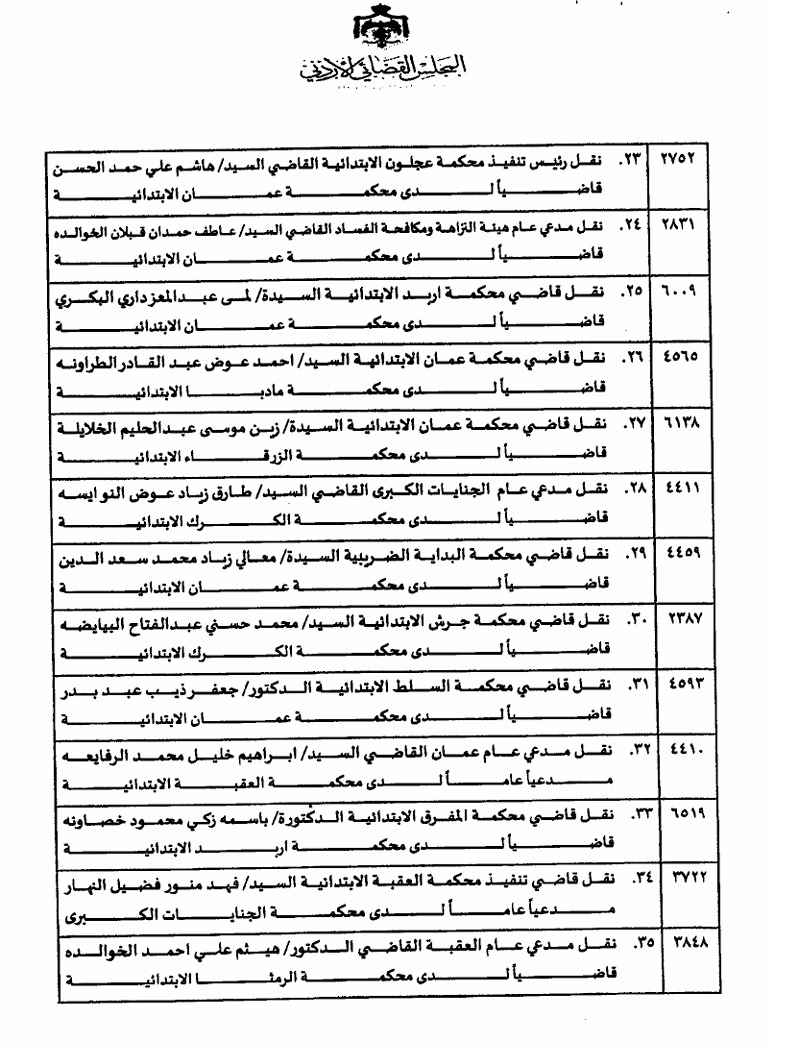 المجلس القضائي الأردني
٢٧٥٢ ٢٣. نقل رئيس تنفيذ محكمة عجلون الابتدائية القاضي السيد/ هاشم علي حمد الحسن
قاضياً لدى محكمة عمان الابتدائية
٢٨٣١ ٢٤. نقل مدعي عام هيئة النزاهة ومكافحة الفساد القاضي السيد/ عاطف حمدان قبلان الخوالده
قاضياً لدى محكمة عمان الابتدائية
٦٠٠٩ ٢٥. نقل قاضي محكمة اربد الابتدائية السيدة/ لمى عبدالمعز داري البكري
قاضياً لدى محكمة عمان الابتدائية
٤٥٦٥ ٢٦. نقل قاضي محكمة عمان الابتدائية السيد/ احمد عوض عبد القادر الطراونه
قاضياً لدى محكمة مادبا الابتدائية
٦١٣٨ ٢٧. نقل قاضي محكمة عمان الابتدائية السيدة/ زين موسى عبدالحليم الخلايلة
قاضياً لدى محكمة الزرقاء الابتدائية
٤٤١١ ٢٨. نقل مدعي عام الجنايات الكبرى القاضي السيد/ طارق زياد عوض النوايسه
قاضياً لدى محكمة الكرك الابتدائية
٤٤٥٩ ٢٩. نقل قاضي محكمة البداية الضريبية السيدة/ معالي زياد محمد سعد الدين
قاضياً لدى محكمة عمان الابتدائية
٢٣٨٧ ٣٠. نقل قاضي محكمة جرش الابتدائية السيد/ محمد حسني عبدالفتاح البيايضه
قاضياً لدى محكمة الكرك الابتدائية
٤٥٩٣ ٣١. نقل قاضي محكمة السلط الابتدائية الدكتور/ جعفر ذيب عبد بدر
قاضياً لدى محكمة عمان الابتدائية
٤٤١٠ ٣٢. نقل مدعي عام عمان القاضي السيد/ ابراهيم خليل محمد الرفايعه
مدعياً عاماً لدى محكمة العقبة الابتدائية
٦٥١٩ ٣٣. نقل قاضي محكمة المفرق الابتدائية الدكتورة/ باسمه زكي محمود خصاونه
قاضياً لدى محكمة اربد الابتدائية
٣٧٢٢ ٣٤. نقل قاضي تنفيذ محكمة العقبة الابتدائية السيد/ فهد منور فضيل النهار
مدعياً عاماً لدى محكمة الجنايات الكبرى
٣٨٤٨ ٣٥. نقل مدعي عام العقبة القاضي الدكتور/ هيثم علي احمد الخوالده
قاضياً لدى محكمة الرمثا الابتدائية